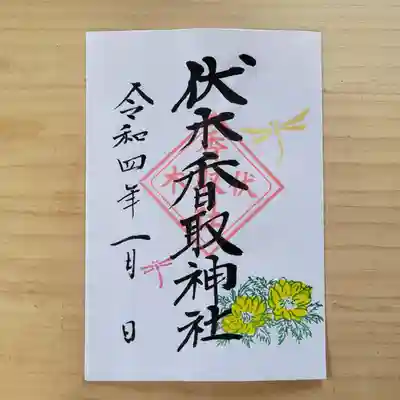 伏木香取神社
令和四年 一月 日